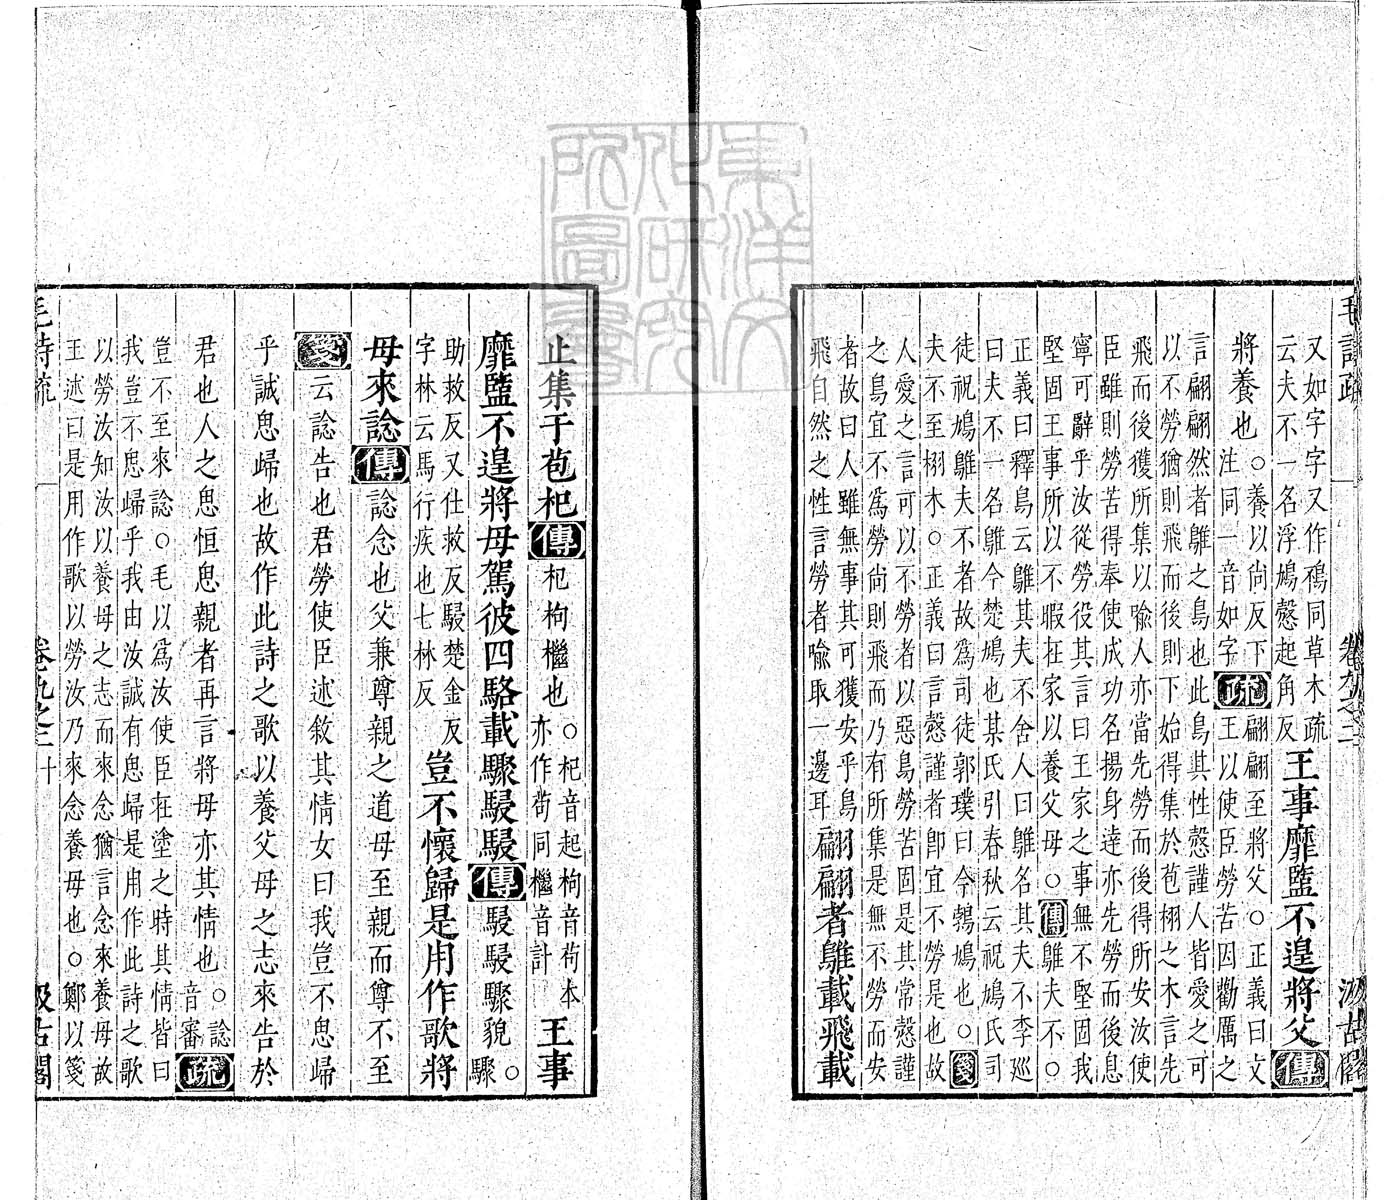 毛詩疏 卷九之二 汲古閣
又如字字又作鳺同草木疏
云夫不一名浮鳩慤起角反
王事靡盬不遑將父傳
將養也
○養以尚反下
注同一音如字
疏
翩翩至將父○正義曰文
王以使臣勞苦因勸厲之
言翩翩然者鵻之鳥也此鳥其性慤謹人皆愛之可
以不勞猶則飛而後則下始得集於苞栩之木言先
飛而後獲所集以喻人亦當先勞而後得所安汝使
臣雖則勞苦得奉使成功名揚身達亦先勞而後息
寧可辭乎汝從勞役其言曰王家之事無不堅固我
堅固王事所以不暇在家以養父母○傳鵻夫不○
正義曰釋鳥云鵻其夫不舍人曰鵻名其夫不李巡
曰夫不一名鵻今楚鳩也某氏引春秋云祝鳩氏司
徒祝鳩鵻夫不者故為司徒郭璞曰今鵓鳩也○箋
夫不至栩木○正義曰言慤謹者卽宜不勞是也故
人愛之言可以不勞者以惡鳥勞苦固是其常慤謹
之鳥宜不為勞尚則飛而乃有所集是無不勞而安
者故曰人雖無事其可獲安乎鳥
飛自然之性言勞者喻取一邊耳
翩翩者鵻載飛載
止集于苞杞傳杞枸檵也
○杞音起枸音苟本
亦作苟同檵音計
王事
靡盬不遑將母駕彼四駱載驟駸駸傳駸駸驟貌
○驟
助救反又仕救反駸楚金反
字林云馬行疾也七林反
豈不懷歸是用作歌將
母來諗傳諗念也父兼尊親之道母至親而尊不至
箋云諗告也君勞使臣述敘其情女曰我豈不思歸
乎誠思歸也故作此詩之歌以養父母之志來告於
君也人之思恒思親者再言將母亦其情也
○諗
音審
疏
豈不至來諗○毛以為汝使臣在塗之時其情皆曰
我豈不思歸乎我由汝誠有思歸是用作此詩之歌
以勞汝知汝以養母之志而來念猶言念來養母故
王述曰是用作歌以勞汝乃來念養母也○鄭以箋
毛詩疏 卷九之二 十 汲古閣
東洋文化研究所圖書